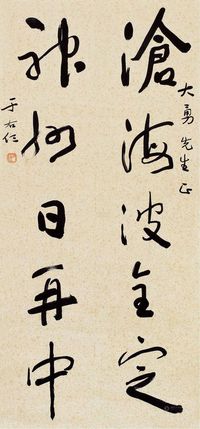 滄海波全定
大勇先生正
神州日再中
于右任